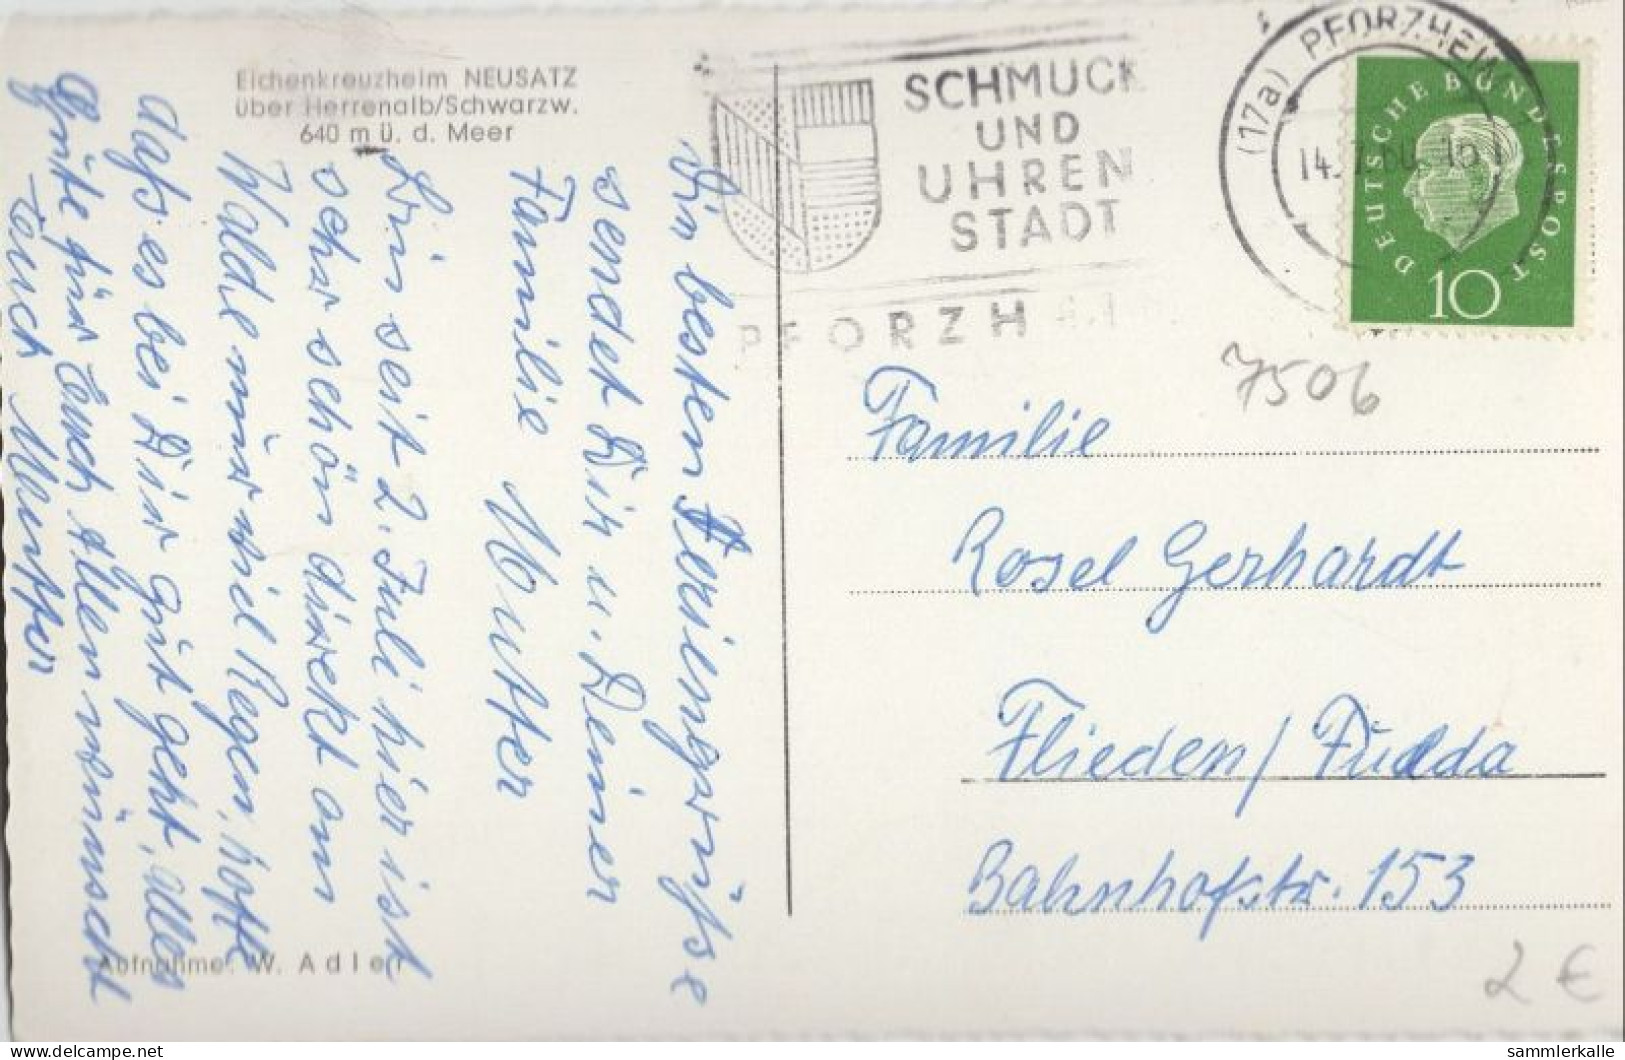 Eichenkreuzheim NEUSATZ
über Herrenalb/Schwarzw.
640 m ü. d. Meer
SCHMUCK
UND
UHREN
STADT
PFORZHEIM
(17a) PFORZHEIM
14.7.60.16
DEUTSCHE BUNDESPOST
10
7506
Die besten Feriengrüsse
sendet Dir u. Deiner
Familie Mutter
Bin seit 2. Juli hier ist
sehr schön direkt am
Walde nur viel Regen, hoffe
daß es bei Dir gut geht, alles
Gute für Euch Allen wünscht
Euch Mutter
Familie
Rosel Gerhardt
Flieden / Fulda
Bahnhofstr. 153
Aufnahme: W. Adler
2 €
sammlerkalle
delcampe.net